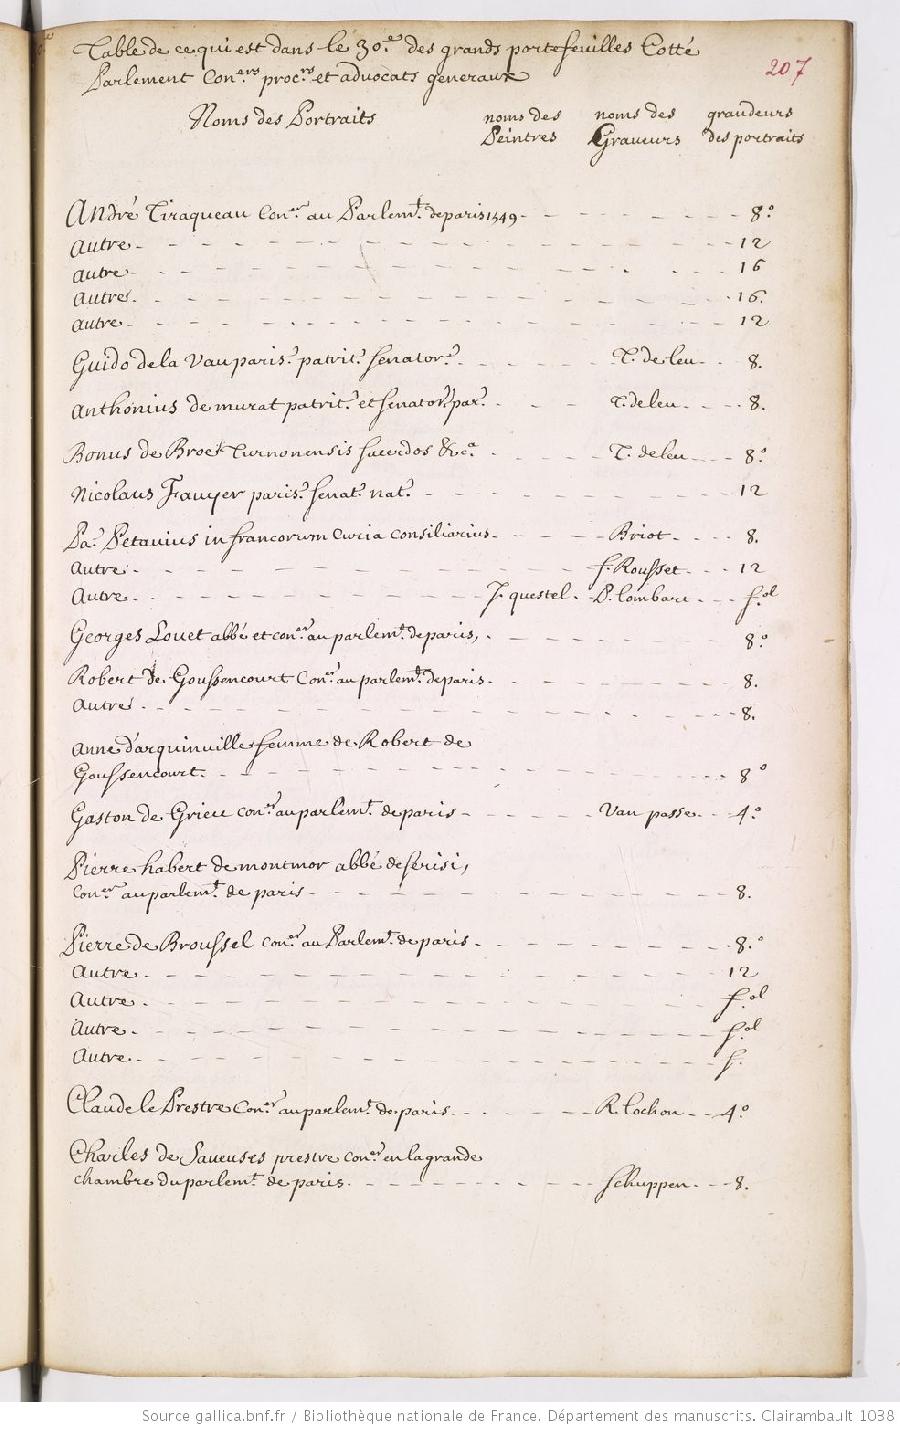 Table de ce qui est dans le 30.e des grands portefeuilles Cotté
Parlement Con.ers proc.rs et advocats generaux
207
Noms des Portraits noms des Peintres noms des Graveurs grandeurs des portraits
André Tiraqueau Con.er au Parlem.t de paris 1549 - - - 8.º
Autre - - - 12
Autre - - - 16
Autre - - - 16.
Autre - - - 12
Guido de la Vau paris.s patrit.s senator.s - - - T. de leu - - 8.
Anthonius de murat patrit.s et senator.s par.s - - - T. de leu - - - 8.
Bonus de Broe Turnonensis sacerdos &c.a - - - T. de leu - - - 8.º
Nicolaus Fauyer paris.s senat.s nat.s - - - 12
Pa.s Petavius in francorum Curia Consiliarius - - - Briot - - - 8.
Autre - - - f. Rousset - - - 12
Autre - - - J. questel - P. lombart - - - f.ol
Georges Louet abbé et con.er au parlem.t de paris, - - - 8.º
Robert de Goussencourt Con.er au parlem.t de paris - - - 8.
Autre - - - 8.
Anne d'arquinuille femme de Robert de
Goussencourt - - - 8º
Gaston de Grieu con.er au parlem.t de paris - - - Van passe - - 4.º
Pierre habert de montmor abbé de serisi,
con.er au parlem.t de paris - - - 8.
Pierre de Broussel con.er au Parlem.t de paris - - - 8.º
Autre - - - 12
Autre - - - f.ol
Autre - - - f.ol
Autre - - - f.
Claude le Prestre Con.er au parlem.t de paris - - - R. lochon - - 4.º
Charles de Saveuses prestre con.er en la grande
chambre du parlem.t de paris - - - schuppen - - - 8.
Source gallica.bnf.fr / Bibliothèque nationale de France. Département des manuscrits. Clairambault 1038